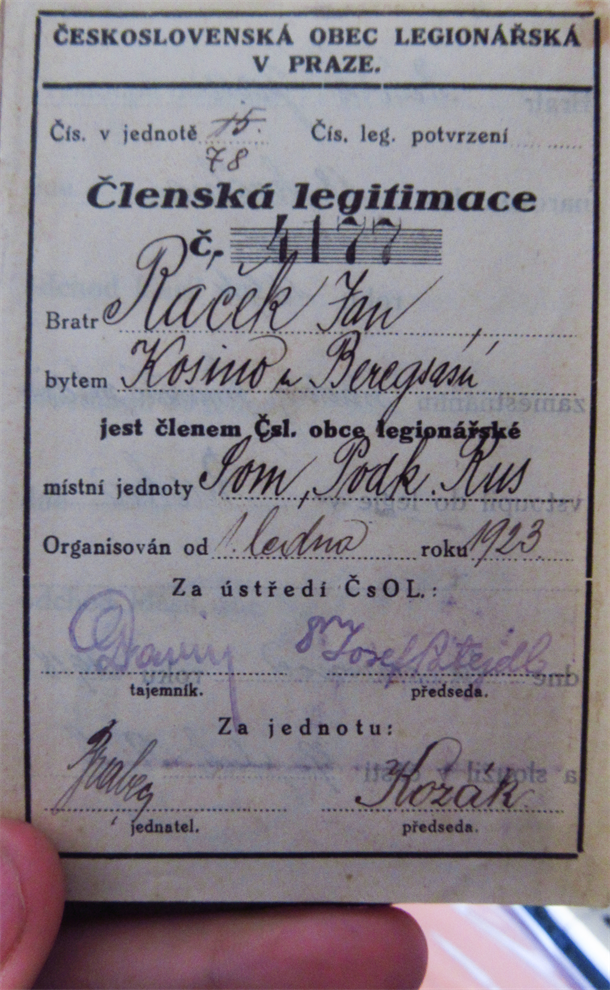 ČESKOSLOVENSKÁ OBEC LEGIONÁŘSKÁ
V PRAZE.
Čís. v jednotě 15. Čís. leg. potvrzení
78
Členská legitimace
č. 4177
Bratr Ráček Jan
bytem Kosino u Beregsásu
jest členem Čsl. obce legionářské
místní jednoty Šom, Podk. Rus
Organisován od 1. ledna roku 1923
Za ústředí ČsOL.:
Dr Josef
tajemník. předseda.
Za jednotu:
Kozák
jednatel. předseda.